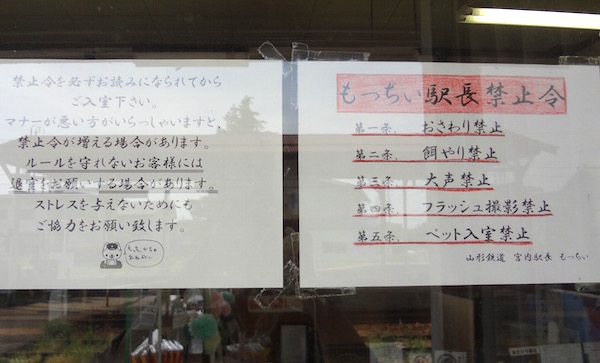 禁止令を必ずお読みになられてから
ご入室下さい。
マナーが悪い方がいらっしゃいますと、
禁止令が増える場合があります。
ルールを守れないお客様には
退室をお願いする場合があります。
ストレスを与えないためにも
ご協力をお願い致します。
もっちい駅長禁止令
第一条、 おさわり禁止
第二条、 餌やり禁止
第三条、 大声禁止
第四条、 フラッシュ撮影禁止
第五条、 ペット入室禁止
山形鉄道 宮内駅長 もっちぃ